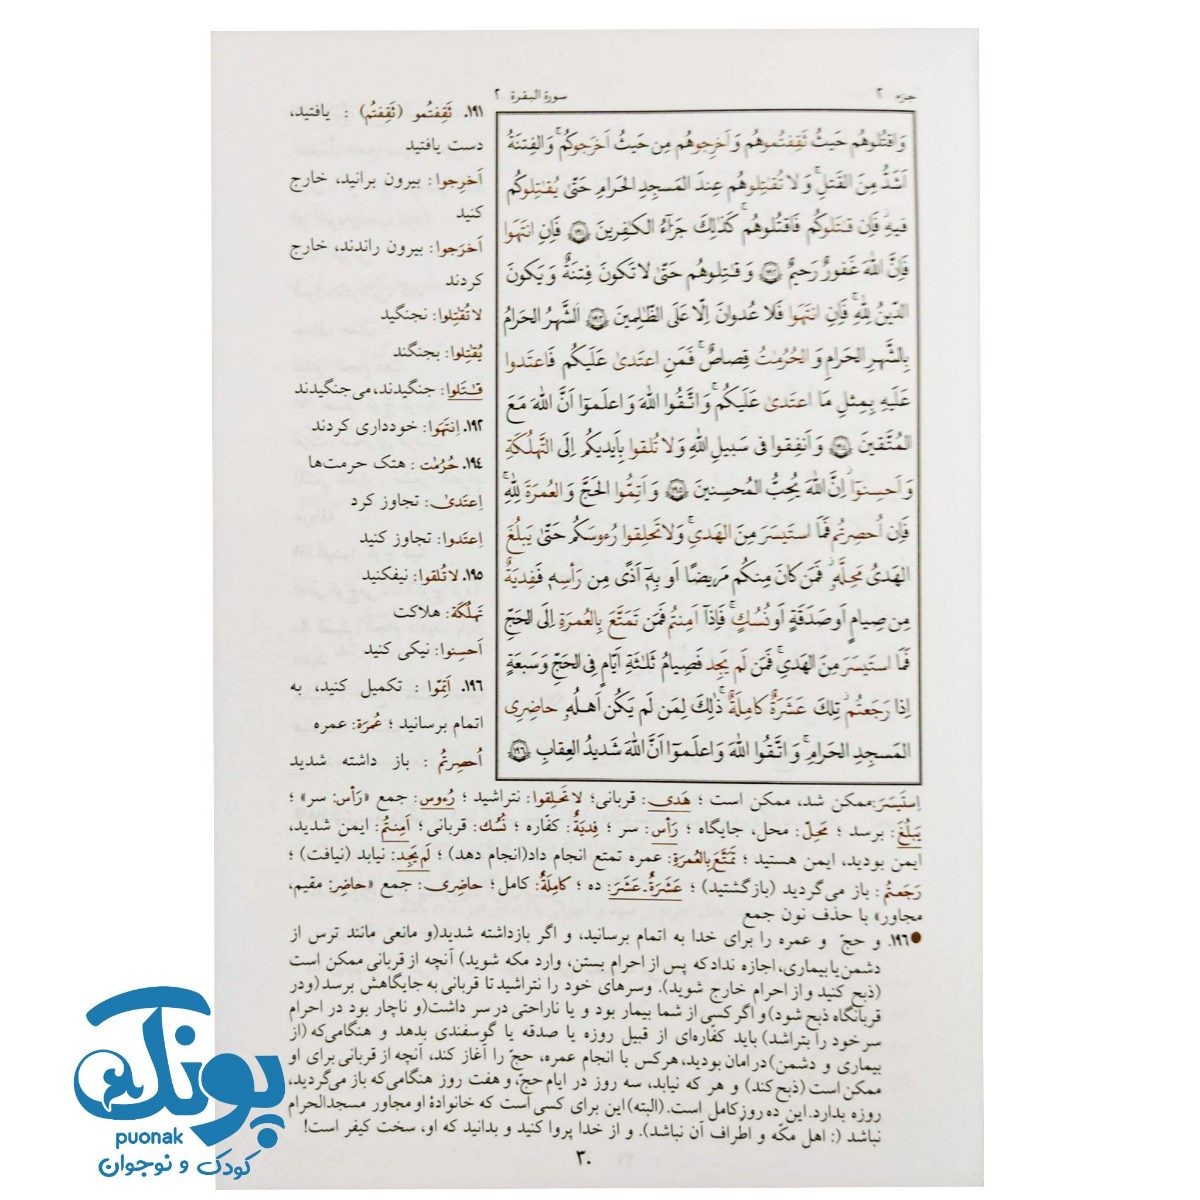 جزء ۲
سورة البقرة ۲
وَاقتُلوهُم حَيثُ ثَقِفتُموهُم وَ اَخرِجوهُم مِن حَيثُ اَخرَجوكُم ۚ وَ الفِتنَةُ
اَشَدُّ مِنَ القَتلِ ۚ وَ لا تُقٰتِلوهُم عِندَ المَسجِدِ الحَرامِ حَتّىٰ يُقٰتِلوكُم
فيهِ ۖ فَاِن قٰتَلوكُم فَاقتُلوهُم ۗ كَذٰلِكَ جَزآءُ الكٰفِرينَ ﴿۱۹۱﴾ فَاِنِ انتَهَوا
فَاِنَّ اللهَ غَفورٌ رَحيمٌ ﴿۱۹۲﴾ وَ قٰتِلوهُم حَتّىٰ لا تَكونَ فِتنَةٌ وَ يَكونَ
الدّينُ لِلّٰهِ ۖ فَاِنِ انتَهَوا فَلا عُدوانَ اِلّا عَلَى الظّالِمينَ ﴿۱۹۳﴾ اَلشَّهرُ الحَرامُ
بِالشَّهرِ الحَرامِ وَ الحُرُمٰتُ قِصاصٌ ۚ فَمَنِ اعتَدىٰ عَلَيكُم فَاعتَدوا
عَلَيهِ بِمِثلِ مَا اعتَدىٰ عَلَيكُم ۚ وَ اتَّقُوا اللهَ وَ اعلَموٓا اَنَّ اللهَ مَعَ
المُتَّقينَ ﴿۱۹۴﴾ وَ اَنفِقوا فى سَبيلِ اللهِ وَ لا تُلقوا بِاَيديكُم اِلَى التَّهلُكَةِ
وَ اَحسِنوٓا ۛ اِنَّ اللهَ يُحِبُّ المُحسِنينَ ﴿۱۹۵﴾ وَ اَتِمُّوا الحَجَّ وَ العُمرَةَ لِلّٰهِ ۚ
فَاِن اُحصِرتُم فَمَا استَيسَرَ مِنَ الهَدىِ ۖ وَ لا تَحلِقوا رُءوسَكُم حَتّىٰ يَبلُغَ
الهَدىُ مَحِلَّهٗ ۚ فَمَن كانَ مِنكُم مَريضًا اَو بِهٖٓ اَذًى مِن رَأسِهٖ فَفِديَةٌ
مِن صِيامٍ اَو صَدَقَةٍ اَو نُسُكٍ ۚ فَاِذآ اَمِنتُم فَمَن تَمَتَّعَ بِالعُمرَةِ اِلَى الحَجِّ
فَمَا استَيسَرَ مِنَ الهَدىِ ۚ فَمَن لَم يَجِد فَصِيامُ ثَلٰثَةِ اَيّامٍ فِى الحَجِّ وَ سَبعَةٍ
اِذا رَجَعتُم ۗ تِلكَ عَشَرَةٌ كامِلَةٌ ۗ ذٰلِكَ لِمَن لَم يَكُن اَهلُهٗ حاضِرِى
المَسجِدِ الحَرامِ ۚ وَ اتَّقُوا اللهَ وَ اعلَموٓا اَنَّ اللهَ شَديدُ العِقابِ ﴿۱۹۶﴾
۱۹۱. ثَقِفتُمو (ثَقِفتُم) : یافتید،
دست یافتید
اَخرِجوا: بیرون برانید، خارج
کنید
اَخرَجوا: بیرون راندند، خارج
کردند
لا تُقٰتِلوا: نجنگید
یُقٰتِلوا: بجنگند
قٰتَلوا: جنگیدند، می‌جنگیدند
۱۹۲. اِنتَهَوا: خودداری کردند
۱۹۴. حُرُمٰت: هتک حرمت‌ها
اِعتَدىٰ: تجاوز کرد
اِعتَدوا: تجاوز کنید
۱۹۵. لا تُلقوا: نیفکنید
تَهلُكَة: هلاکت
اَحسِنوا: نیکی کنید
۱۹۶. اَتِمّوا : تکمیل کنید، به
اتمام برسانید ؛ عُمرَة: عمره
اُحصِرتُم : باز داشته شدید
اِستَیسَرَ: ممکن شد، ممکن است ؛ هَدی: قربانی؛ لا تَحلِقوا: نتراشید ؛ رُءوس: جمع «رَأس: سر» ؛
یَبلُغَ: برسد ؛ مَحِلّ: محل، جایگاه ؛ رَأس: سر ؛ فِدیَةٌ: کفّاره ؛ نُسُك: قربانی؛ اَمِنتُم: ایمن شدید،
ایمن بودید، ایمن هستید ؛ تَمَتَّعَ بِالعُمرَةِ: عمره تمتع انجام داد(انجام دهد) ؛ لَم یَجِد: نیابد (نیافت) ؛
رَجَعتُم: باز می‌گردید (بازگشتید) ؛ عَشَرَةٌ.عَشَرَ: ده ؛ كامِلَةٌ: کامل ؛ حاضِری: جمع «حاضِر: مقیم،
مجاور» با حذف نون جمع
۱۹۶. و حجّ و عمره را برای خدا به اتمام برسانید، و اگر بازداشته شدید(و مانعی مانند ترس از
دشمن یا بیماری، اجازه نداد که پس از احرام بستن، وارد مکه شوید) آنچه از قربانی ممکن است
(ذبح کنید و از احرام خارج شوید). وسرهای خود را نتراشید تا قربانی به جایگاهش برسد (ودر
قربانگاه ذبح شود) و اگر کسی از شما بیمار بود و یا ناراحتی در سر داشت(و ناچار بود در احرام
سر خود را بتراشد) باید کفّاره‌ای از قبیل روزه یا صدقه یا گوسفندی بدهد و هنگامی که (از
بیماری و دشمن) در امان بودید، هر کس با انجام عمره، حجّ را آغاز کند، آنچه از قربانی برای او
ممکن است (ذبح کند) و هر که نیابد، سه روز در ایام حجّ، و هفت روز هنگامی که باز می‌گردید،
روزه بدارد. این ده روز کامل است. (البته) این برای کسی است که خانوادهٔ او مجاور مسجدالحرام
نباشد (: اهل مکّه و اطراف آن نباشد). و از خدا پروا کنید و بدانید که او، سخت کیفر است!
۳۰
پونک
puonak
کودک و نوجوان